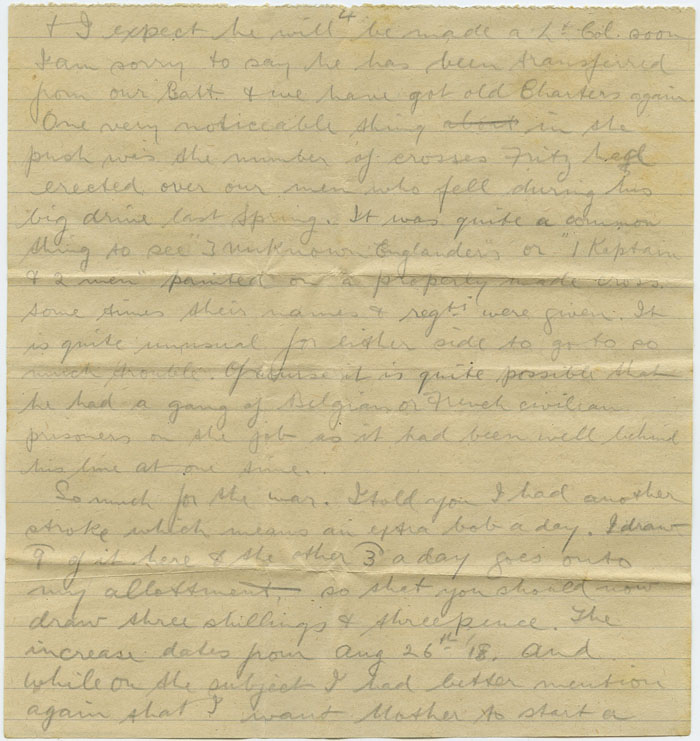 4
& I expect he will be made a Lt Col. soon
I am sorry to say he has been transferred
from our Batt. & we have got old Charters again
One very noticeable thing about in the
push was the number of crosses Fritz had
erected over our men who fell during his
big drive last Spring. It was quite a common
thing to see "3 unknown Englanders" or "1 Kaptain
& 2 men" painted on a properly made cross.
some times their names & regts were given. It
is quite unusual for either side to go to so
much trouble. Of course it is quite possible that
he had a gang of Belgian or French civilian
prisoners on the job as it had been well behind
his line at one time..
So much for the war. I told you I had another
stroke which means an extra bob a day. I draw
9 of it here & the other 3 a day goes onto
my allottment, so that you should now
draw three shillings & threepence. The
increase dates from Aug 26th '18. And
while on the subject I had better mention
again that I want Mother to start a